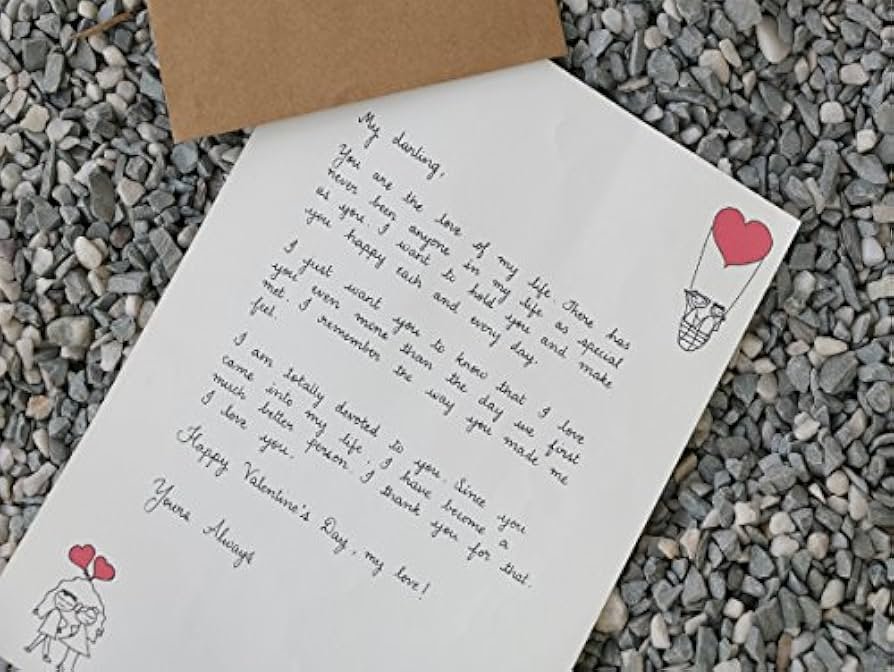 My darling,
You are the love of my life. There has
never been anyone in my life as special
as you. I want to hold you and make
you happy each and every day.
I just want you to know that I love
you even more than the day we first
met. I remember the way you made me
feel.
I am totally devoted to you. Since you
came into my life, I have become a
much better person. I thank you for that.
I love you.
Happy Valentine's Day, my love!
Yours Always